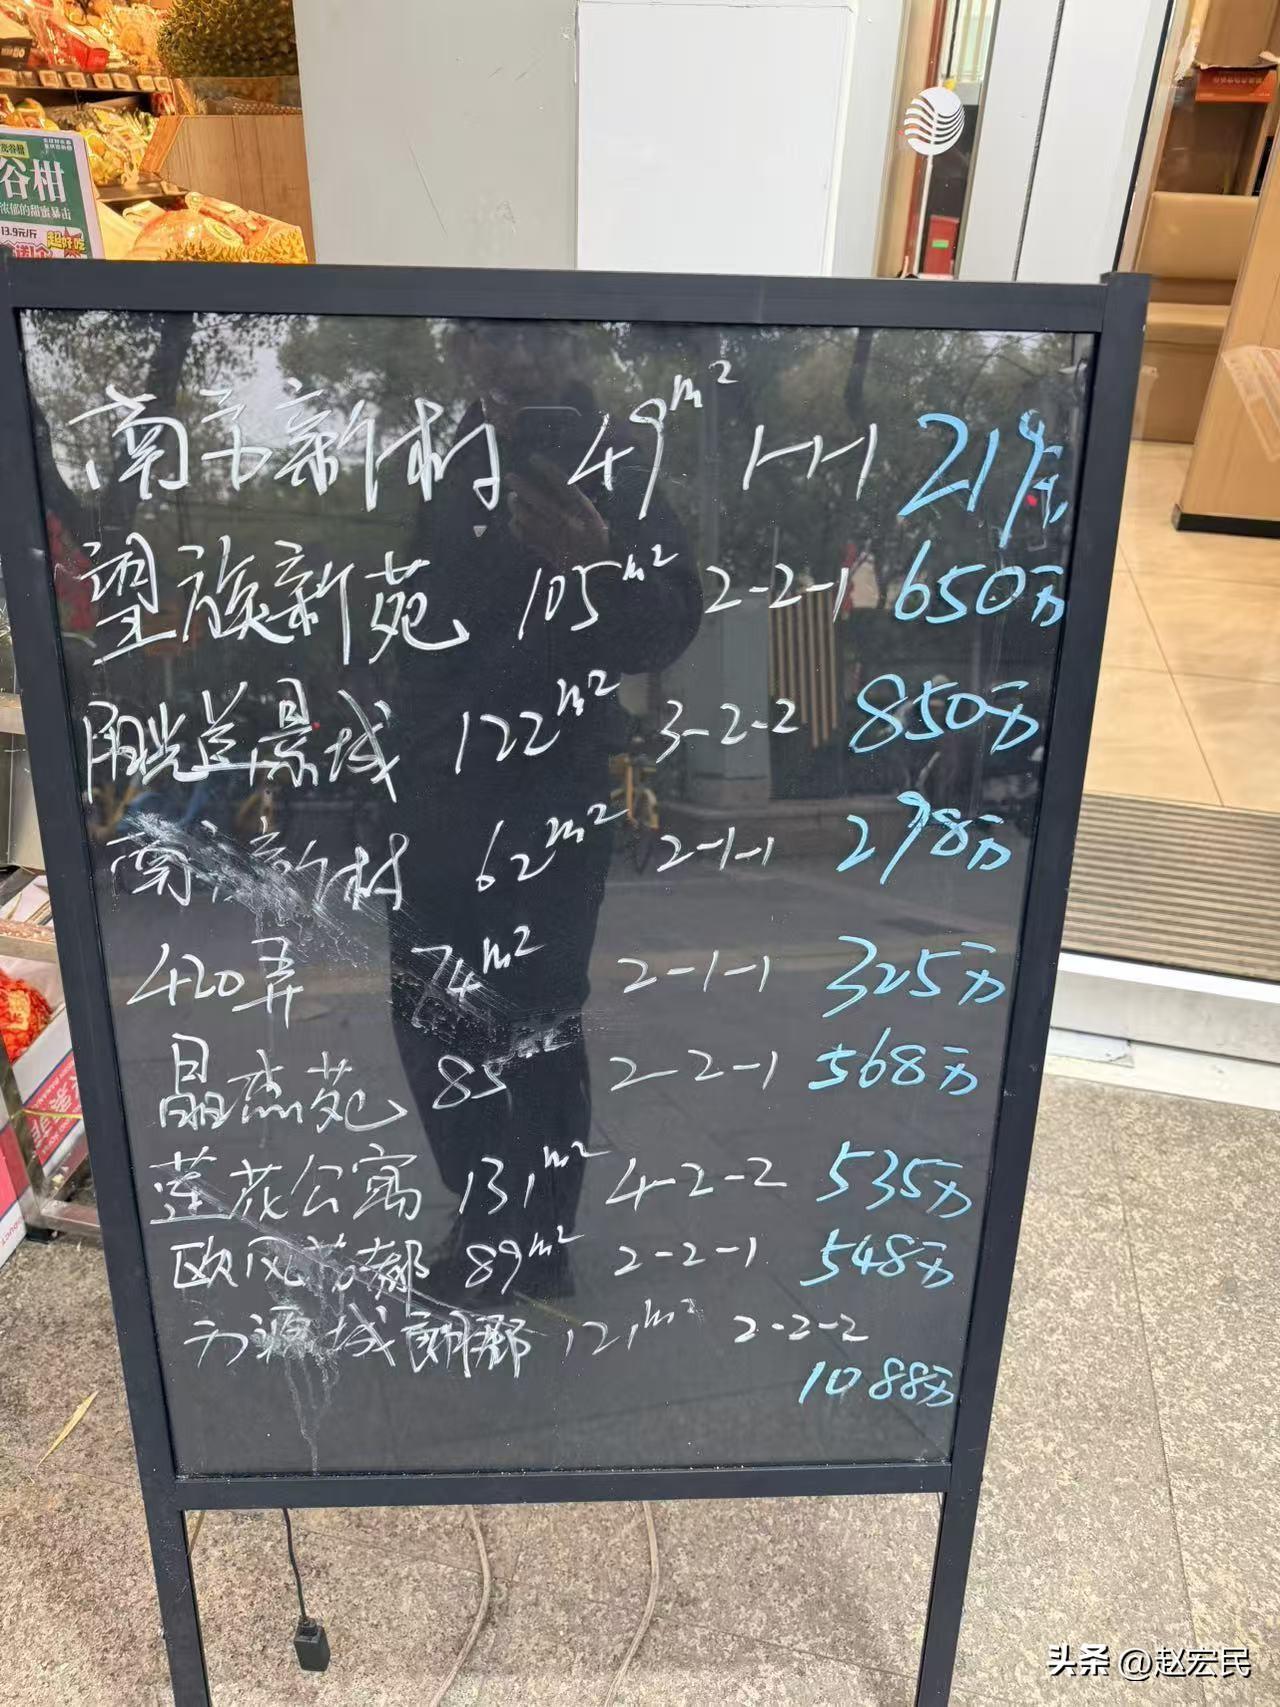 谷柑
浓郁的甜蜜暴击
13.9元/斤
超好吃
南方新村 49m² 1-1-1 219万
望族新苑 105m² 2-2-1 650万
阳光道景域 122m² 3-2-2 850万
南方新村 62m² 2-1-1 298万
420弄 74m² 2-1-1 325万
晶杰苑 85 2-2-1 568万
莲花公寓 131m² 4-2-2 535万
欧风花都 89m² 2-2-1 548万
万源城朗郡 121m² 2-2-2
1088万
头条 @赵宏民